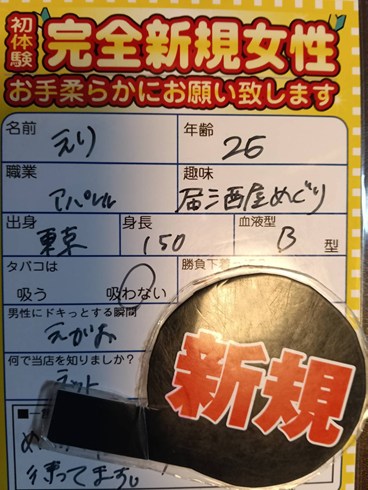 初体験
完全新規女性
お手柔らかにお願い致します
名前 えり 年齢 26
職業 アパレル 趣味 居酒屋めぐり
出身 東京 身長 150 血液型 B 型
タバコは 吸う 吸わない 勝負下着
男性にドキっとする瞬間
えがお
何で当店を知りましたか?
ネット
新規
待ってます。